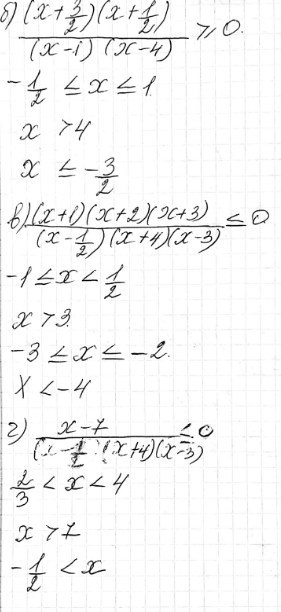 б) (x+3/2)(x+1/2) / (x-1)(x-4) ≥ 0.
-1/2 ≤ x ≤ 1
x > 4
x ≤ -3/2
в) (x+1)(x+2)(x+3) / (x-1/2)(x+4)(x-3) ≤ 0
-1 ≤ x < 1/2
x > 3.
-3 ≤ x ≤ -2.
x < -4
г) x-7 / (x-1/2)(x+4)(x-3) ≤ 0
2/3 < x < 4
x > 7
-1/2 < x